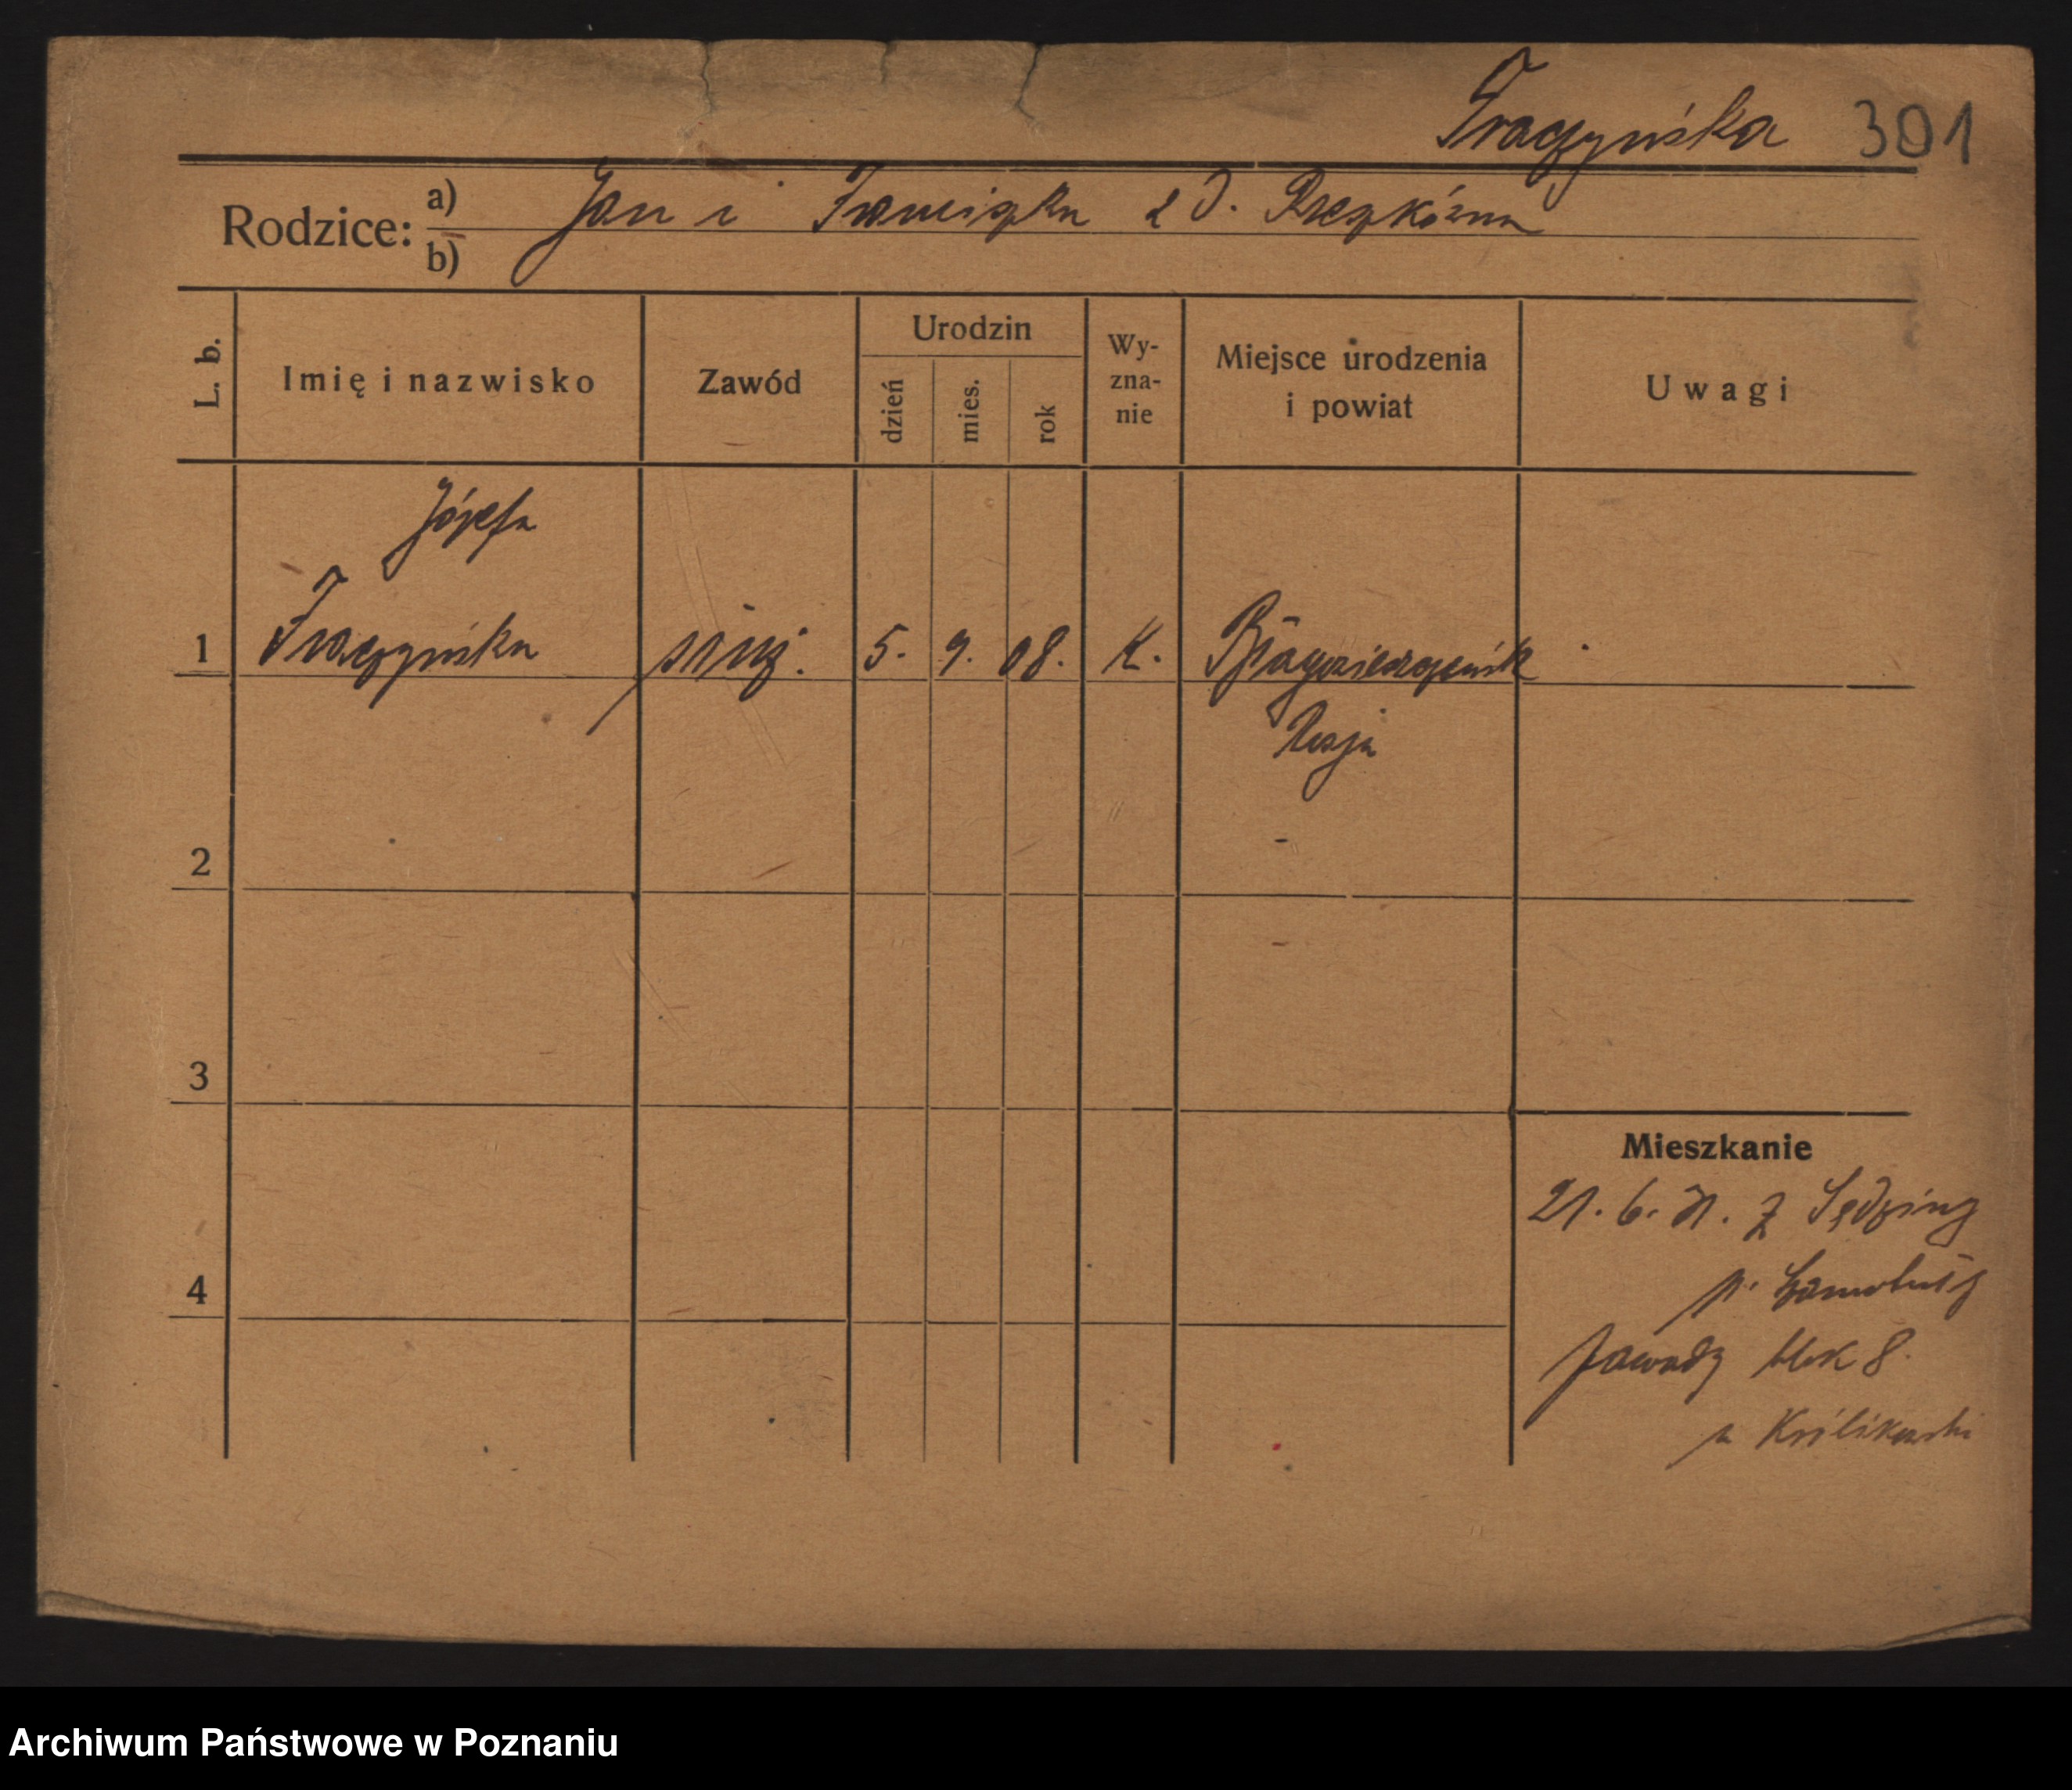 Traczyńska 301
Rodzice: a) Jan i Franciszka z d.
b)
L. b.
Imię i nazwisko
Zawód
Urodzin
dzień
mies.
rok
Wy-
zna-
nie
Miejsce urodzenia
i powiat
Uwagi
Józefa
1 Traczyńska służ. 5. 9. 08. K.
Rosja
2
3
4
Mieszkanie
21. 6. 31. z Sędziny
p. Szamotuły
Zawady blok 8.
u Królikowski
Archiwum Państwowe w Poznaniu